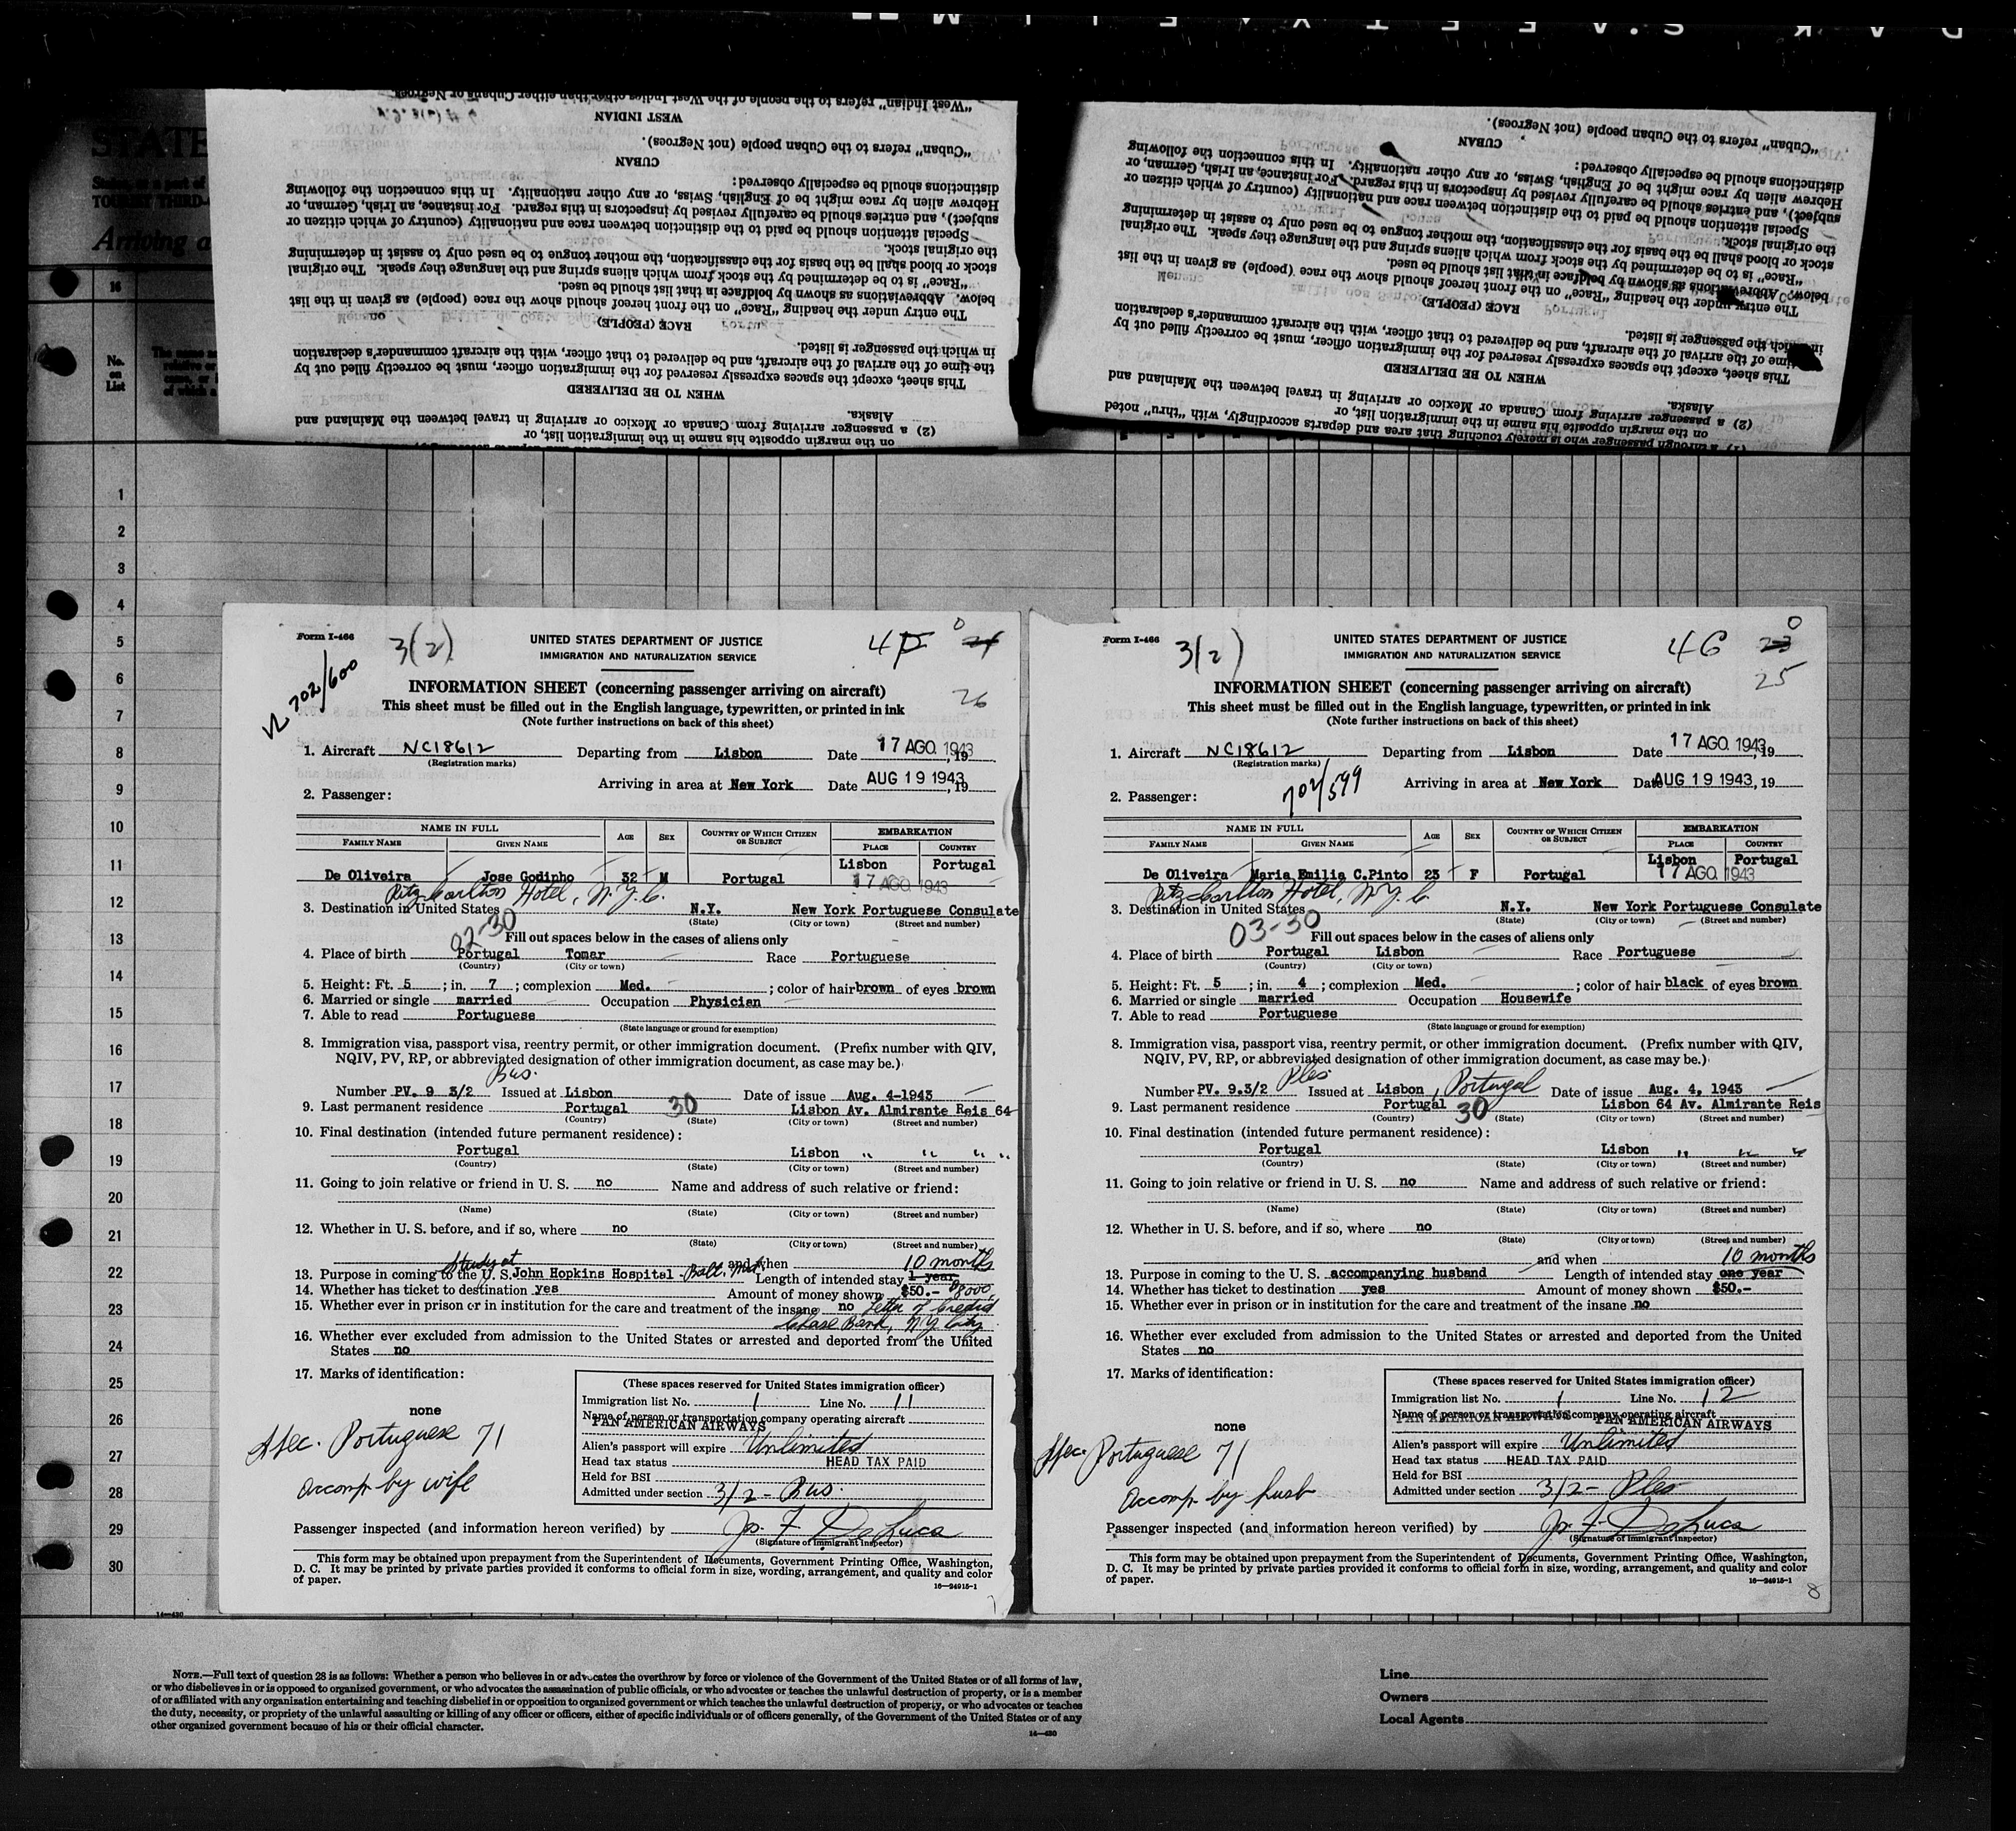 STATE
Arriving a
No.
on
List
"West Indian" refers to the people of the West Indies other than either Cubans or Negroes
WEST INDIAN
"Cuban" refers to the Cuban people (not Negroes).
CUBAN
distinctions should be especially observed:
Hebrew alien by race might be of English, Swiss, or any other nationality. In this connection the following
subject), and entries should be carefully revised by inspectors in this regard. For instance, an Irish, German, or
Special attention should be paid to the distinction between race and nationality (country of which citizen or
the original stock.
stock or blood shall be the basis for the classification, the mother tongue to be used only to assist in determining
"Race" is to be determined by the stock from which aliens spring and the language they speak. The original
below. Abbreviations as shown by boldface in that list should be used.
The entry under the heading "Race" on the front hereof should show the race (people) as given in the list
RACE (PEOPLE)
in which the passenger is listed.
the time of the arrival of the aircraft, and be delivered to that officer, with the aircraft commander's declaration
This sheet, except the spaces expressly reserved for the immigration officer, must be correctly filled out by
WHEN TO BE DELIVERED
Alaska.
(2) a passenger arriving from Canada or Mexico or arriving in travel between the Mainland and
on the margin opposite his name in the immigration list, or
"Cuban" refers to the Cuban people (not Negroes).
CUBAN
distinctions should be especially observed:
Hebrew alien by race might be of English, Swiss, or any other nationality. In this connection the following
subject), and entries should be carefully revised by inspectors in this regard. For instance, an Irish, German, or
Special attention should be paid to the distinction between race and nationality (country of which citizen or
the original stock.
stock or blood shall be the basis for the classification, the mother tongue to be used only to assist in determining
"Race" is to be determined by the stock from which aliens spring and the language they speak. The original
below. Abbreviations as shown by boldface in that list should be used.
The entry under the heading "Race" on the front hereof should show the race (people) as given in the list
RACE (PEOPLE)
in which the passenger is listed.
time of the arrival of the aircraft, and be delivered to that officer, with the aircraft commander's declaration
This sheet, except the spaces expressly reserved for the immigration officer, must be correctly filled out by
WHEN TO BE DELIVERED
Alaska.
(2) a passenger arriving from Canada or Mexico or arriving in travel between the Mainland and
on the margin opposite his name in the immigration list, or
(1) a through passenger who is merely touching that area and departs accordingly, with "thru" noted
16
1
2
3
4
5
6
7
8
9
10
11
12
13
14
15
16
17
18
19
20
21
22
23
24
25
26
27
28
29
30
Form I-466
3(2)
UNITED STATES DEPARTMENT OF JUSTICE
IMMIGRATION AND NATURALIZATION SERVICE
702/600
26
INFORMATION SHEET (concerning passenger arriving on aircraft)
This sheet must be filled out in the English language, typewritten, or printed in ink
(Note further instructions on back of this sheet)
1. Aircraft NC18612 Departing from Lisbon Date 17 AGO. 1943, 19
(Registration marks)
Arriving in area at New York Date AUG 19 1943, 19
2. Passenger:
NAME IN FULL AGE SEX COUNTRY OF WHICH CITIZEN OR SUBJECT EMBARKATION
FAMILY NAME GIVEN NAME PLACE COUNTRY
Lisbon Portugal
De Oliveira Jose Godinho 32 M Portugal 17 AGO. 1943
Ritz-Carlton Hotel, N.Y.C.
3. Destination in United States N.Y. New York Portuguese Consulate
(State) (City or town) (Street and number)
02-30
Fill out spaces below in the cases of aliens only
4. Place of birth Portugal Tomar Race Portuguese
(Country) (City or town)
5. Height: Ft. 5; in. 7; complexion Med.; color of hair brown of eyes brown
6. Married or single married Occupation Physician
7. Able to read Portuguese
(State language or ground for exemption)
8. Immigration visa, passport visa, reentry permit, or other immigration document. (Prefix number with QIV,
NQIV, PV, RP, or abbreviated designation of other immigration document, as case may be.)
Bus.
Number PV. 9 3/2 Issued at Lisbon Date of issue Aug. 4-1943
9. Last permanent residence Portugal 30 Lisbon Av. Almirante Reis 64
(Country) (State) (City or town) (Street and number)
10. Final destination (intended future permanent residence):
Portugal Lisbon " " " "
(Country) (State) (City or town) (Street and number)
11. Going to join relative or friend in U. S. no Name and address of such relative or friend:
(Name) (State) (City or town) (Street and number)
12. Whether in U. S. before, and if so, where no
(State) (City or town) (Street and number)
Study at and when 10 months
13. Purpose in coming to the U. S. John Hopkins Hospital - Balt. Md. Length of intended stay 1 year
14. Whether has ticket to destination yes Amount of money shown $50.- 8000,
15. Whether ever in prison or in institution for the care and treatment of the insane no Letter of Credit
Chase Bank, N.Y. City
16. Whether ever excluded from admission to the United States or arrested and deported from the United
States no
17. Marks of identification:
none
(These spaces reserved for United States immigration officer)
Immigration list No. 1 Line No. 11
Name of person or transportation company operating aircraft
PAN AMERICAN AIRWAYS
Alien's passport will expire Unlimited
Head tax status HEAD TAX PAID
Held for BSI
Admitted under section 3/2 - Bus.
Portuguese 71
Accomp. by wife
Passenger inspected (and information hereon verified) by Jos. F. DeLuca
(Signature of Immigrant Inspector)
This form may be obtained upon prepayment from the Superintendent of Documents, Government Printing Office, Washington,
D. C. It may be printed by private parties provided it conforms to official form in size, wording, arrangement, and quality and color
of paper.
16—24915-1
Form I-466
3(2)
UNITED STATES DEPARTMENT OF JUSTICE
IMMIGRATION AND NATURALIZATION SERVICE
46
0
23
25
INFORMATION SHEET (concerning passenger arriving on aircraft)
This sheet must be filled out in the English language, typewritten, or printed in ink
(Note further instructions on back of this sheet)
1. Aircraft NC18612 Departing from Lisbon Date 17 AGO. 1943, 19
(Registration marks)
702/599
Arriving in area at New York Date AUG 19 1943, 19
2. Passenger:
NAME IN FULL AGE SEX COUNTRY OF WHICH CITIZEN OR SUBJECT EMBARKATION
FAMILY NAME GIVEN NAME PLACE COUNTRY
Lisbon Portugal
De Oliveira Maria Emilia C.Pinto 23 F Portugal 17 AGO. 1943
Ritz-Carlton Hotel, N.Y.C.
3. Destination in United States N.Y. New York Portuguese Consulate
(State) (City or town) (Street and number)
03-30
Fill out spaces below in the cases of aliens only
4. Place of birth Portugal Lisbon Race Portuguese
(Country) (City or town)
5. Height: Ft. 5; in. 4; complexion Med.; color of hair black of eyes brown
6. Married or single married Occupation Housewife
7. Able to read Portuguese
(State language or ground for exemption)
8. Immigration visa, passport visa, reentry permit, or other immigration document. (Prefix number with QIV,
NQIV, PV, RP, or abbreviated designation of other immigration document, as case may be.)
Ples
Number PV. 9.3/2 Issued at Lisbon, Portugal Date of issue Aug. 4, 1943
9. Last permanent residence Portugal 30 Lisbon 64 Av. Almirante Reis
(Country) (State) (City or town) (Street and number)
10. Final destination (intended future permanent residence):
Portugal Lisbon " " "
(Country) (State) (City or town) (Street and number)
11. Going to join relative or friend in U. S. no Name and address of such relative or friend:
(Name) (State) (City or town) (Street and number)
12. Whether in U. S. before, and if so, where no
(State) (City or town) (Street and number)
and when 10 months
13. Purpose in coming to the U. S. accompanying husband Length of intended stay one year
14. Whether has ticket to destination yes Amount of money shown $50.-
15. Whether ever in prison or in institution for the care and treatment of the insane no
16. Whether ever excluded from admission to the United States or arrested and deported from the United
States no
17. Marks of identification:
none
(These spaces reserved for United States immigration officer)
Immigration list No. 1 Line No. 12
Name of person or transportation company operating aircraft
PAN AMERICAN AIRWAYS PAN AMERICAN AIRWAYS
Alien's passport will expire Unlimited
Head tax status HEAD TAX PAID
Held for BSI
Admitted under section 3/2 - Ples
Portuguese 71
Accomp. by husb
Passenger inspected (and information hereon verified) by Jos. F. DeLuca
(Signature of Immigrant Inspector)
This form may be obtained upon prepayment from the Superintendent of Documents, Government Printing Office, Washington,
D. C. It may be printed by private parties provided it conforms to official form in size, wording, arrangement, and quality and color
of paper.
16—24915-1
8
14—430
NOTE.—Full text of question 28 is as follows: Whether a person who believes in or advocates the overthrow by force or violence of the Government of the United States or of all forms of law,
or who disbelieves in or is opposed to organized government, or who advocates the assassination of public officials, or who advocates or teaches the unlawful destruction of property, or is a member
of or affiliated with any organization entertaining and teaching disbelief in or opposition to organized government or which teaches the unlawful destruction of property, or who advocates or teaches
the duty, necessity, or propriety of the unlawful assaulting or killing of any officer or officers, either of specific individuals or of officers generally, of the Government of the United States or of any
other organized government because of his or their official character.
14—430
Line
Owners
Local Agents